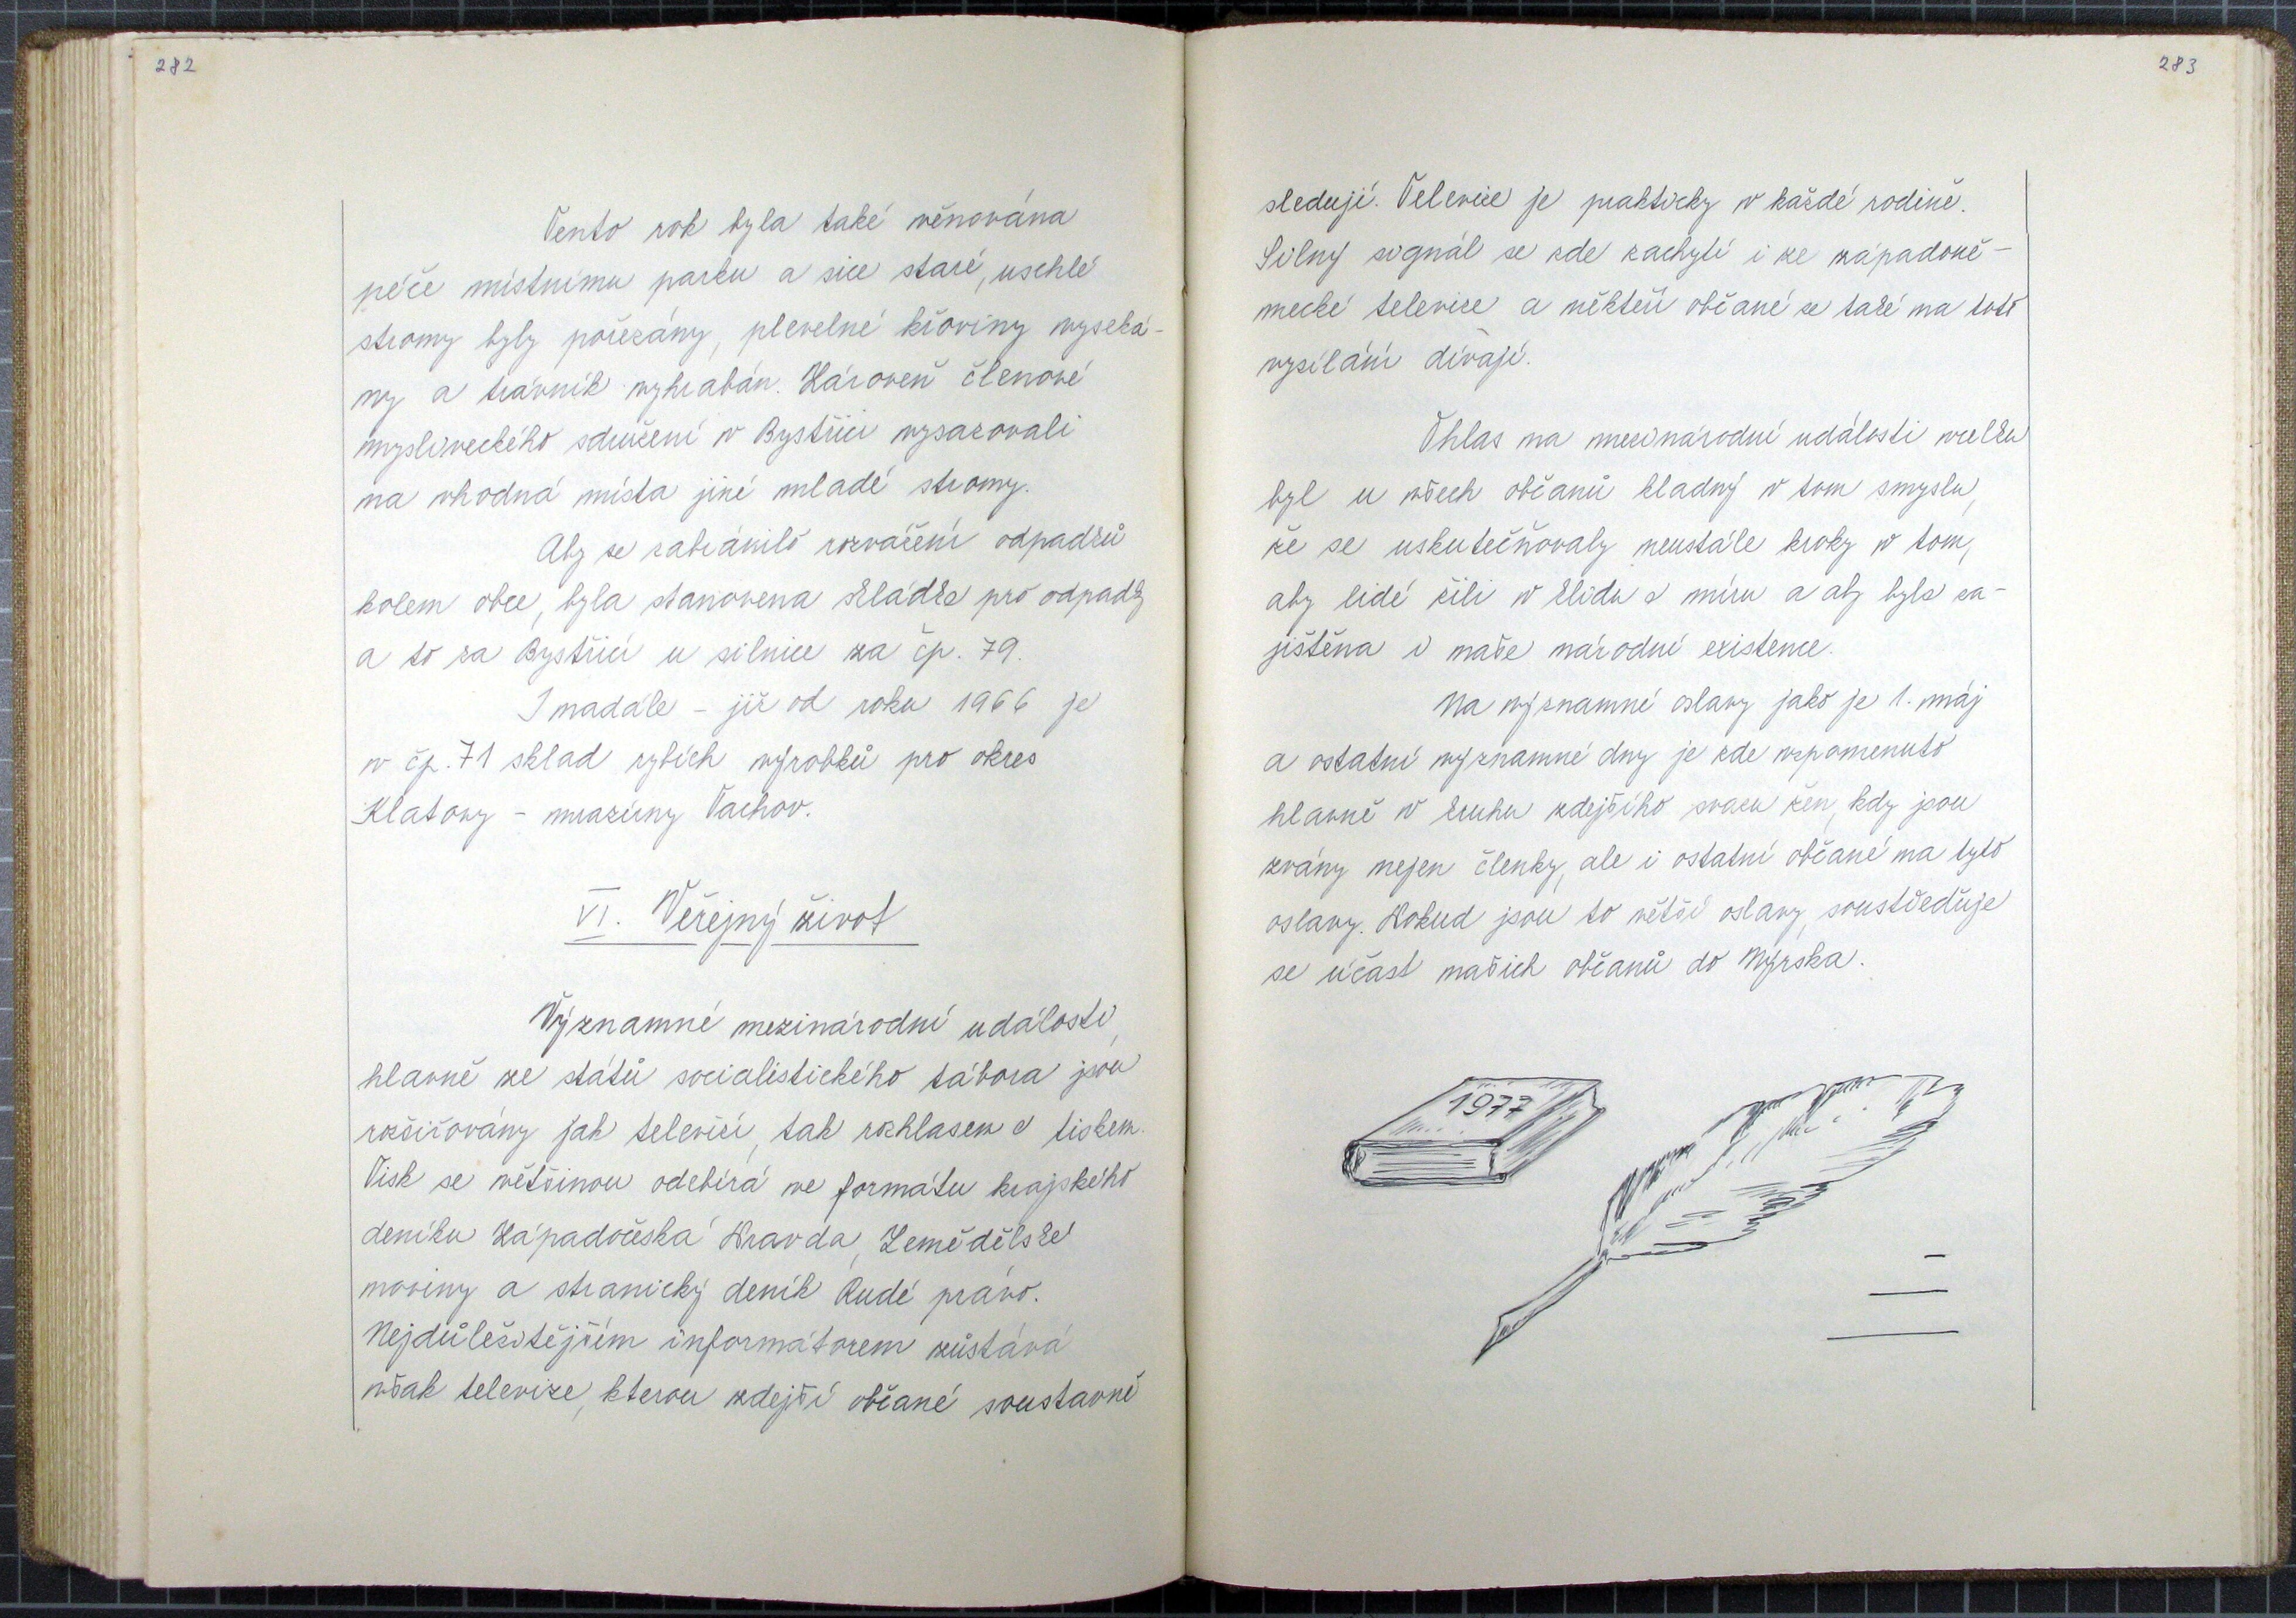 282
Tento rok byla také věnována
péče místnímu parku a sice staré, uschlé
stromy byly pořezány, plevelné křoviny vyseká-
ny a trávník vyhrabán. Zároveň členové
mysliveckého sdružení v Bystřici vysazovali
na vhodná místa jiné mladé stromy.
Aby se zabránilo rozvážení odpadků
kolem obce, byla stanovena skládka pro odpadky
a to za Bystřicí u silnice za čp. 79.
I nadále – již od roku 1966 je
v čp. 71 sklad rybích výrobků pro okres
Klatovy – mrazírny Tachov.
VI. Veřejný život
Významné mezinárodní události,
hlavně ze států socialistického tábora jsou
rozšiřovány jak televizí, tak rozhlasem a tiskem.
Tisk se většinou odebírá ve formátu krajského
deníku Západočeská Pravda, Zemědělské
noviny a stranický deník Rudé právo.
Nejdůležitějším informátorem zůstává
však televize, kterou zdejší občané soustavně
283
sledují. Televize je prakticky v každé rodině.
Silný signál se zde zachytí i ze západoně-
mecké televize a někteří občané se také na toto
vysílání dívají.
Ohlas na mezinárodní události vcelku
byl u všech občanů kladný v tom smyslu,
že se uskutečňovaly neustále kroky v tom,
aby lidé žili v klidu a míru a aby byla za-
jištěna i naše národní existence.
Na významné oslavy jako je 1. máj
a ostatní významné dny je zde vzpomenuto
hlavně v kruhu zdejšího svazu žen, kdy jsou
zvány nejen členky, ale i ostatní občané na tyto
oslavy. Pokud jsou to větší oslavy, soustřeďuje
se účast našich občanů do Nýrska.
1977